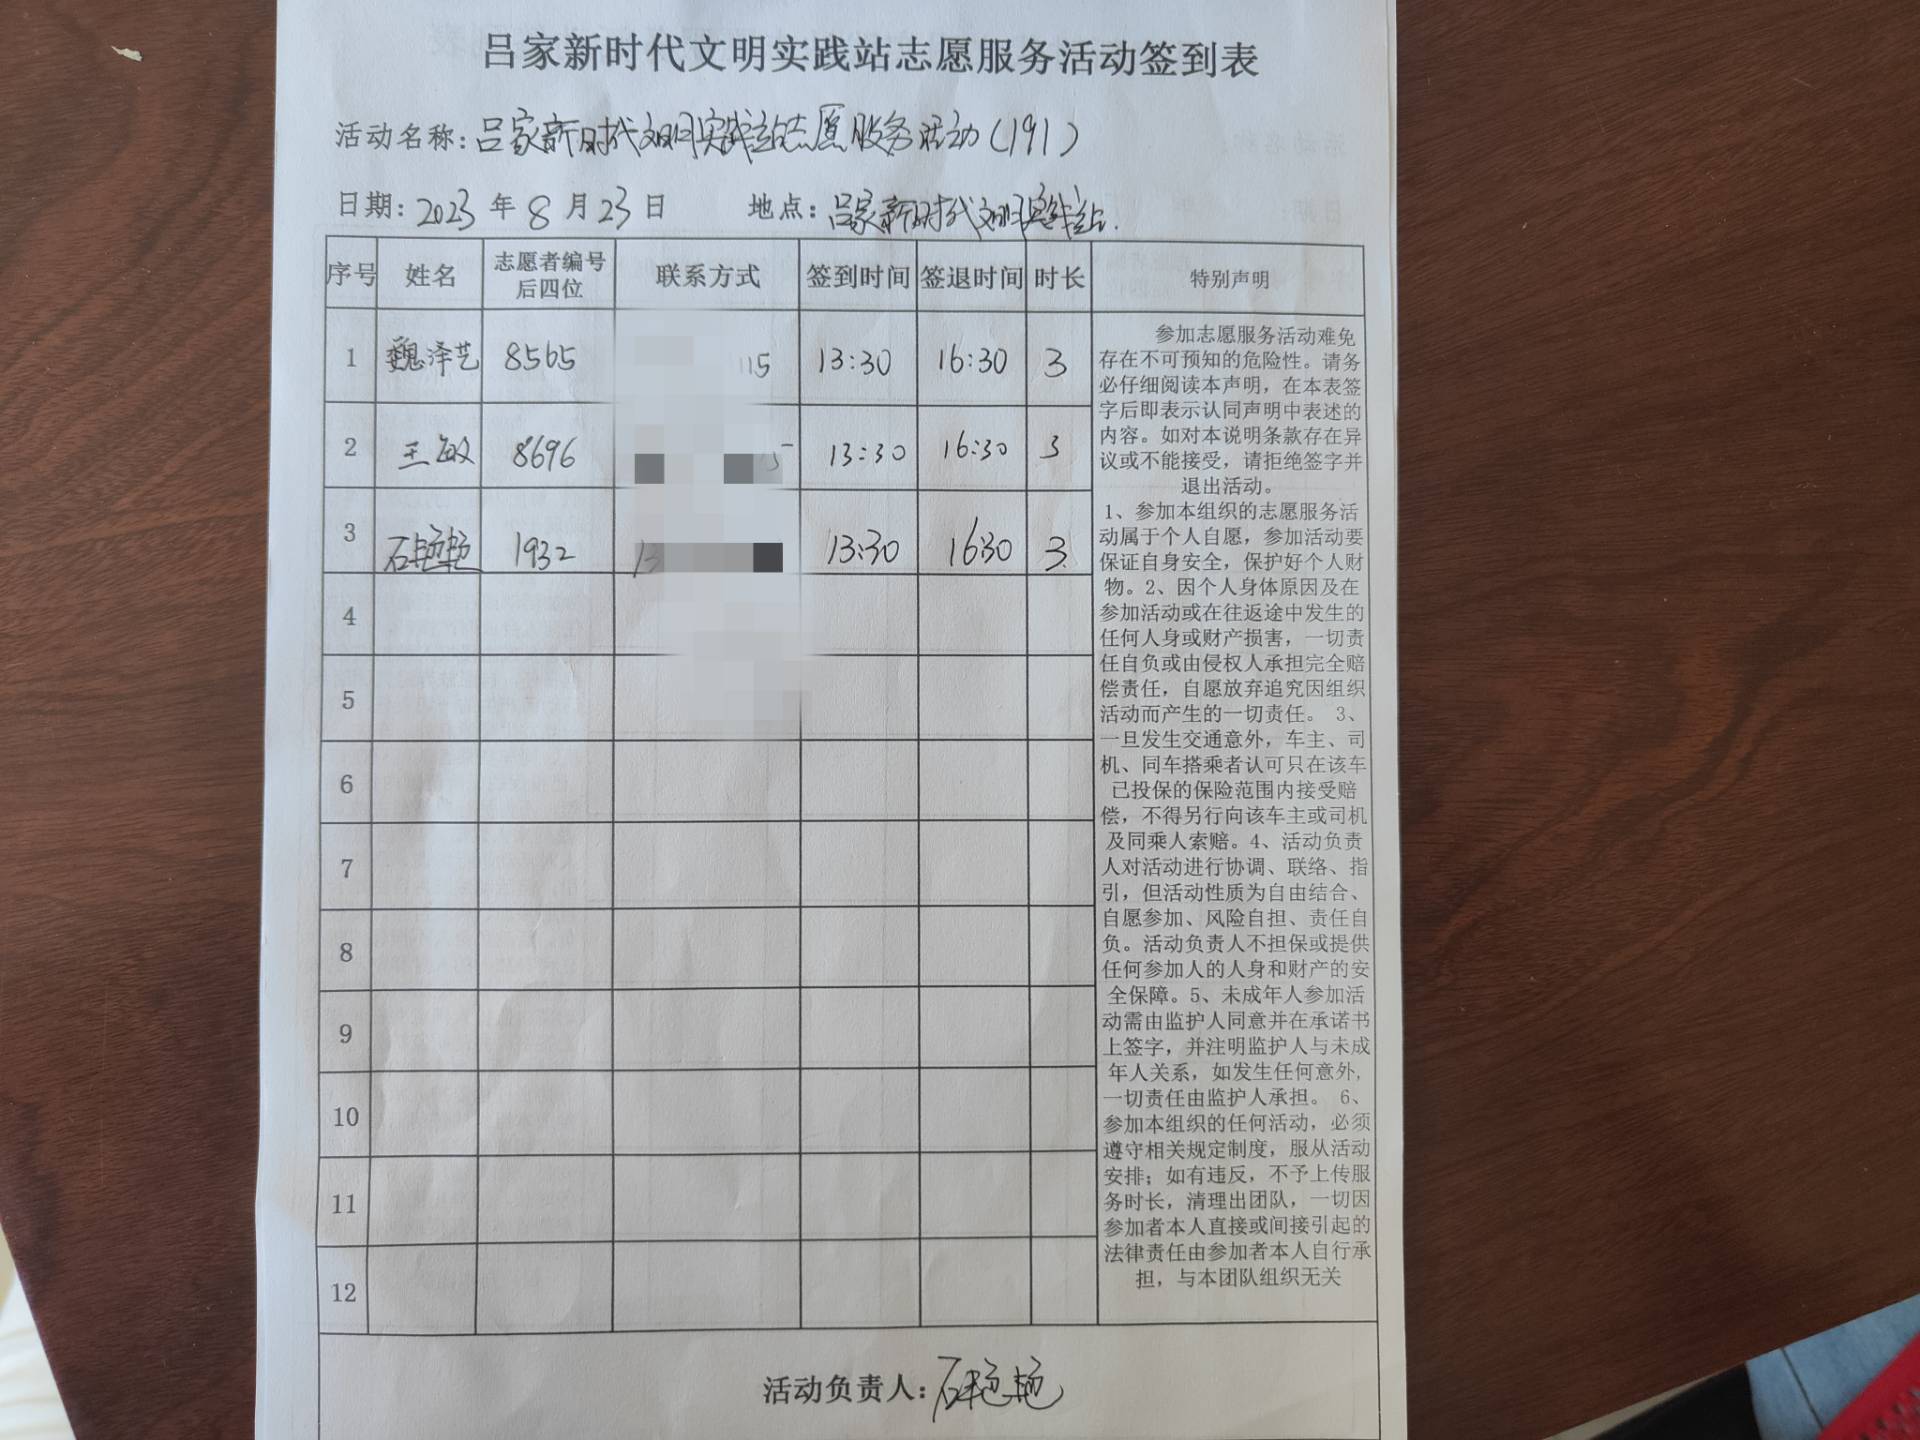 吕家新时代文明实践站志愿服务活动签到表
活动名称：吕家新时代文明实践站志愿服务活动(191)
日期：2023 年 8 月 23 日 地点：吕家新时代文明实践站.
序号 姓名 志愿者编号后四位 联系方式 签到时间 签退时间 时长 特别声明
1 魏泽艺 8565 115 13:30 16:30 3
2 王敏 8696 13:30 16:30 3
3 石艳艳 1932 13 13:30 16:30 3
4
5
6
7
8
9
10
11
12
参加志愿服务活动难免
存在不可预知的危险性。请务
必仔细阅读本声明，在本表签
字后即表示认同声明中表述的
内容。如对本说明条款存在异
议或不能接受，请拒绝签字并
退出活动。
1、参加本组织的志愿服务活
动属于个人自愿，参加活动要
保证自身安全，保护好个人财
物。2、因个人身体原因及在
参加活动或在往返途中发生的
任何人身或财产损害，一切责
任自负或由侵权人承担完全赔
偿责任，自愿放弃追究因组织
活动而产生的一切责任。 3、
一旦发生交通意外，车主、司
机、同车搭乘者认可只在该车
已投保的保险范围内接受赔
偿，不得另行向该车主或司机
及同乘人索赔。4、活动负责
人对活动进行协调、联络、指
引，但活动性质为自由结合、
自愿参加、风险自担、责任自
负。活动负责人不担保或提供
任何参加人的人身和财产的安
全保障。5、未成年人参加活
动需由监护人同意并在承诺书
上签字，并注明监护人与未成
年人关系，如发生任何意外，
一切责任由监护人承担。 6、
参加本组织的任何活动，必须
遵守相关规定制度，服从活动
安排；如有违反，不予上传服
务时长，清理出团队，一切因
参加者本人直接或间接引起的
法律责任由参加者本人自行承
担，与本团队组织无关
活动负责人：石艳艳